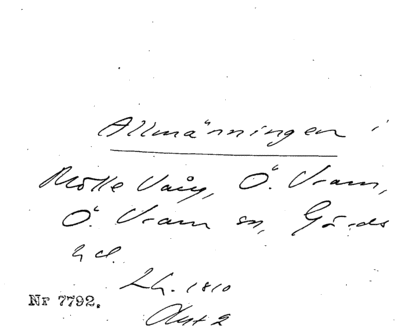 Allmänningen i
Mölle Vång, Ö. Vram,
Ö. Vram sn, Gärds
hd.
Lh. 1810
Nr 7792.
Akt 2